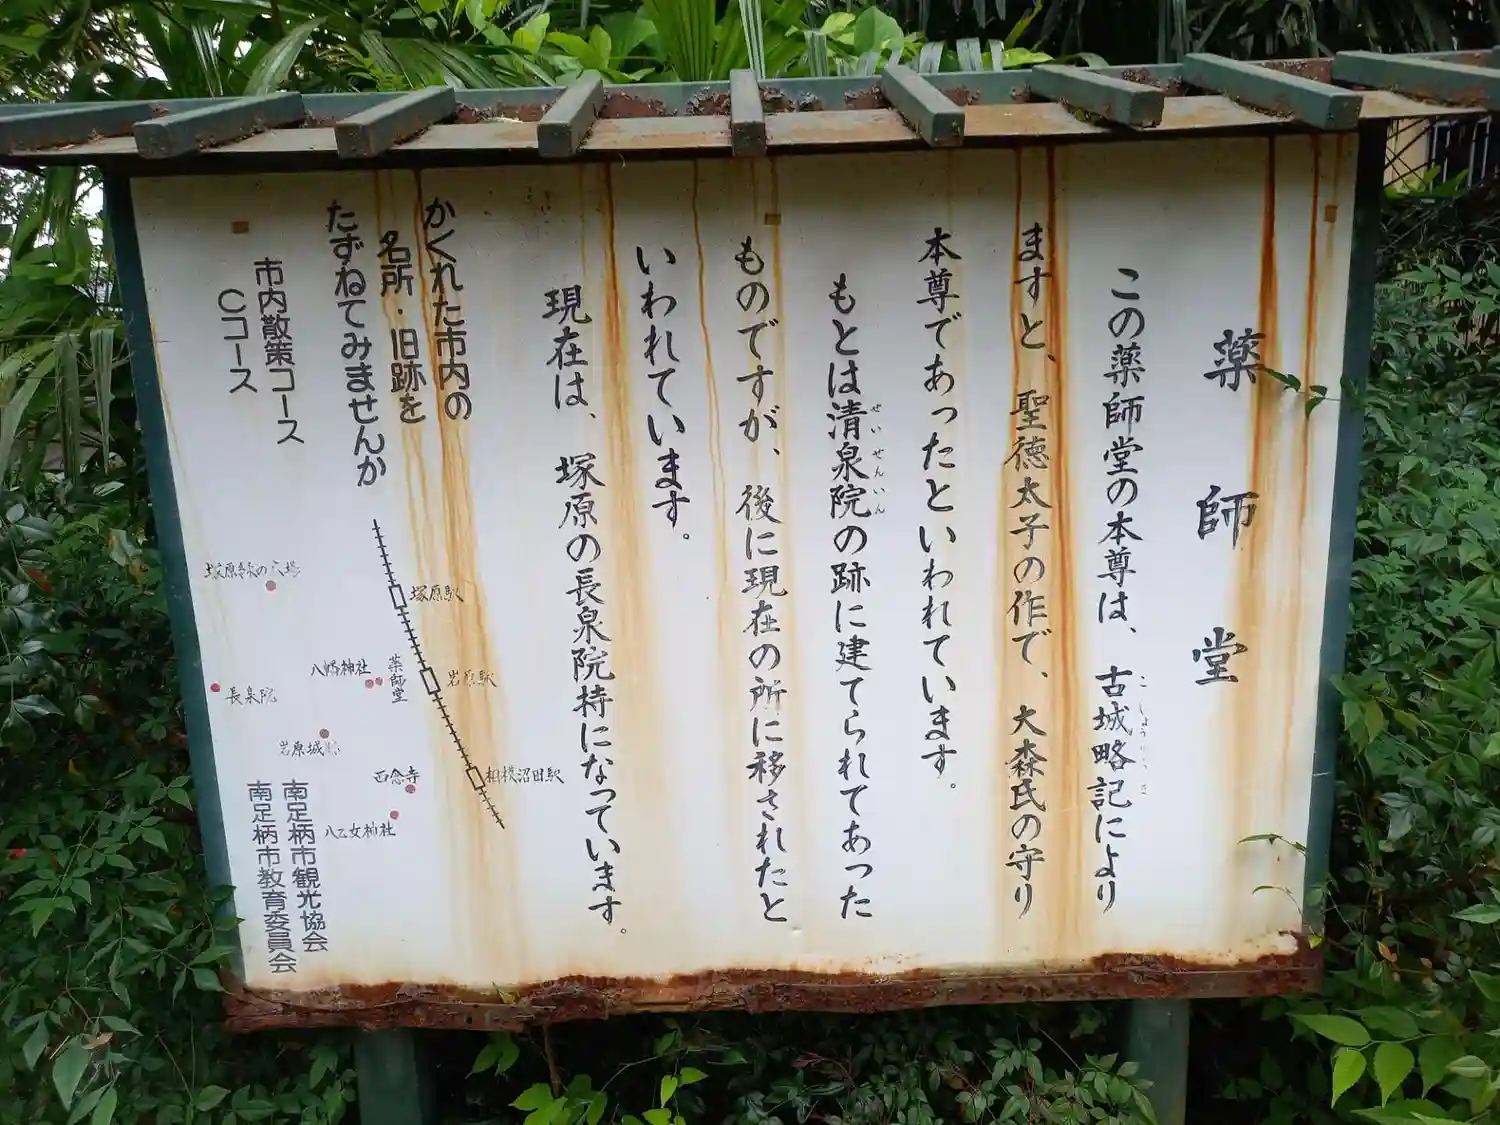 薬師堂
この薬師堂の本尊は、古城略記により
ますと、聖徳太子の作で、大森氏の守り
本尊であったといわれています。
もとは清泉院の跡に建てられてあった
せいせんいん
ものですが、後に現在の所に移されたと
いわれています。
現在は、塚原の長泉院持になっています。
かくれた市内の
名所・旧跡を
たずねてみませんか
市内散策コース
Cコース
塚原駅
岩原駅
相模沼田駅
薬師堂
八幡神社
長泉院
岩原城
西念寺
八乙女神社
南足柄市観光協会
南足柄市教育委員会